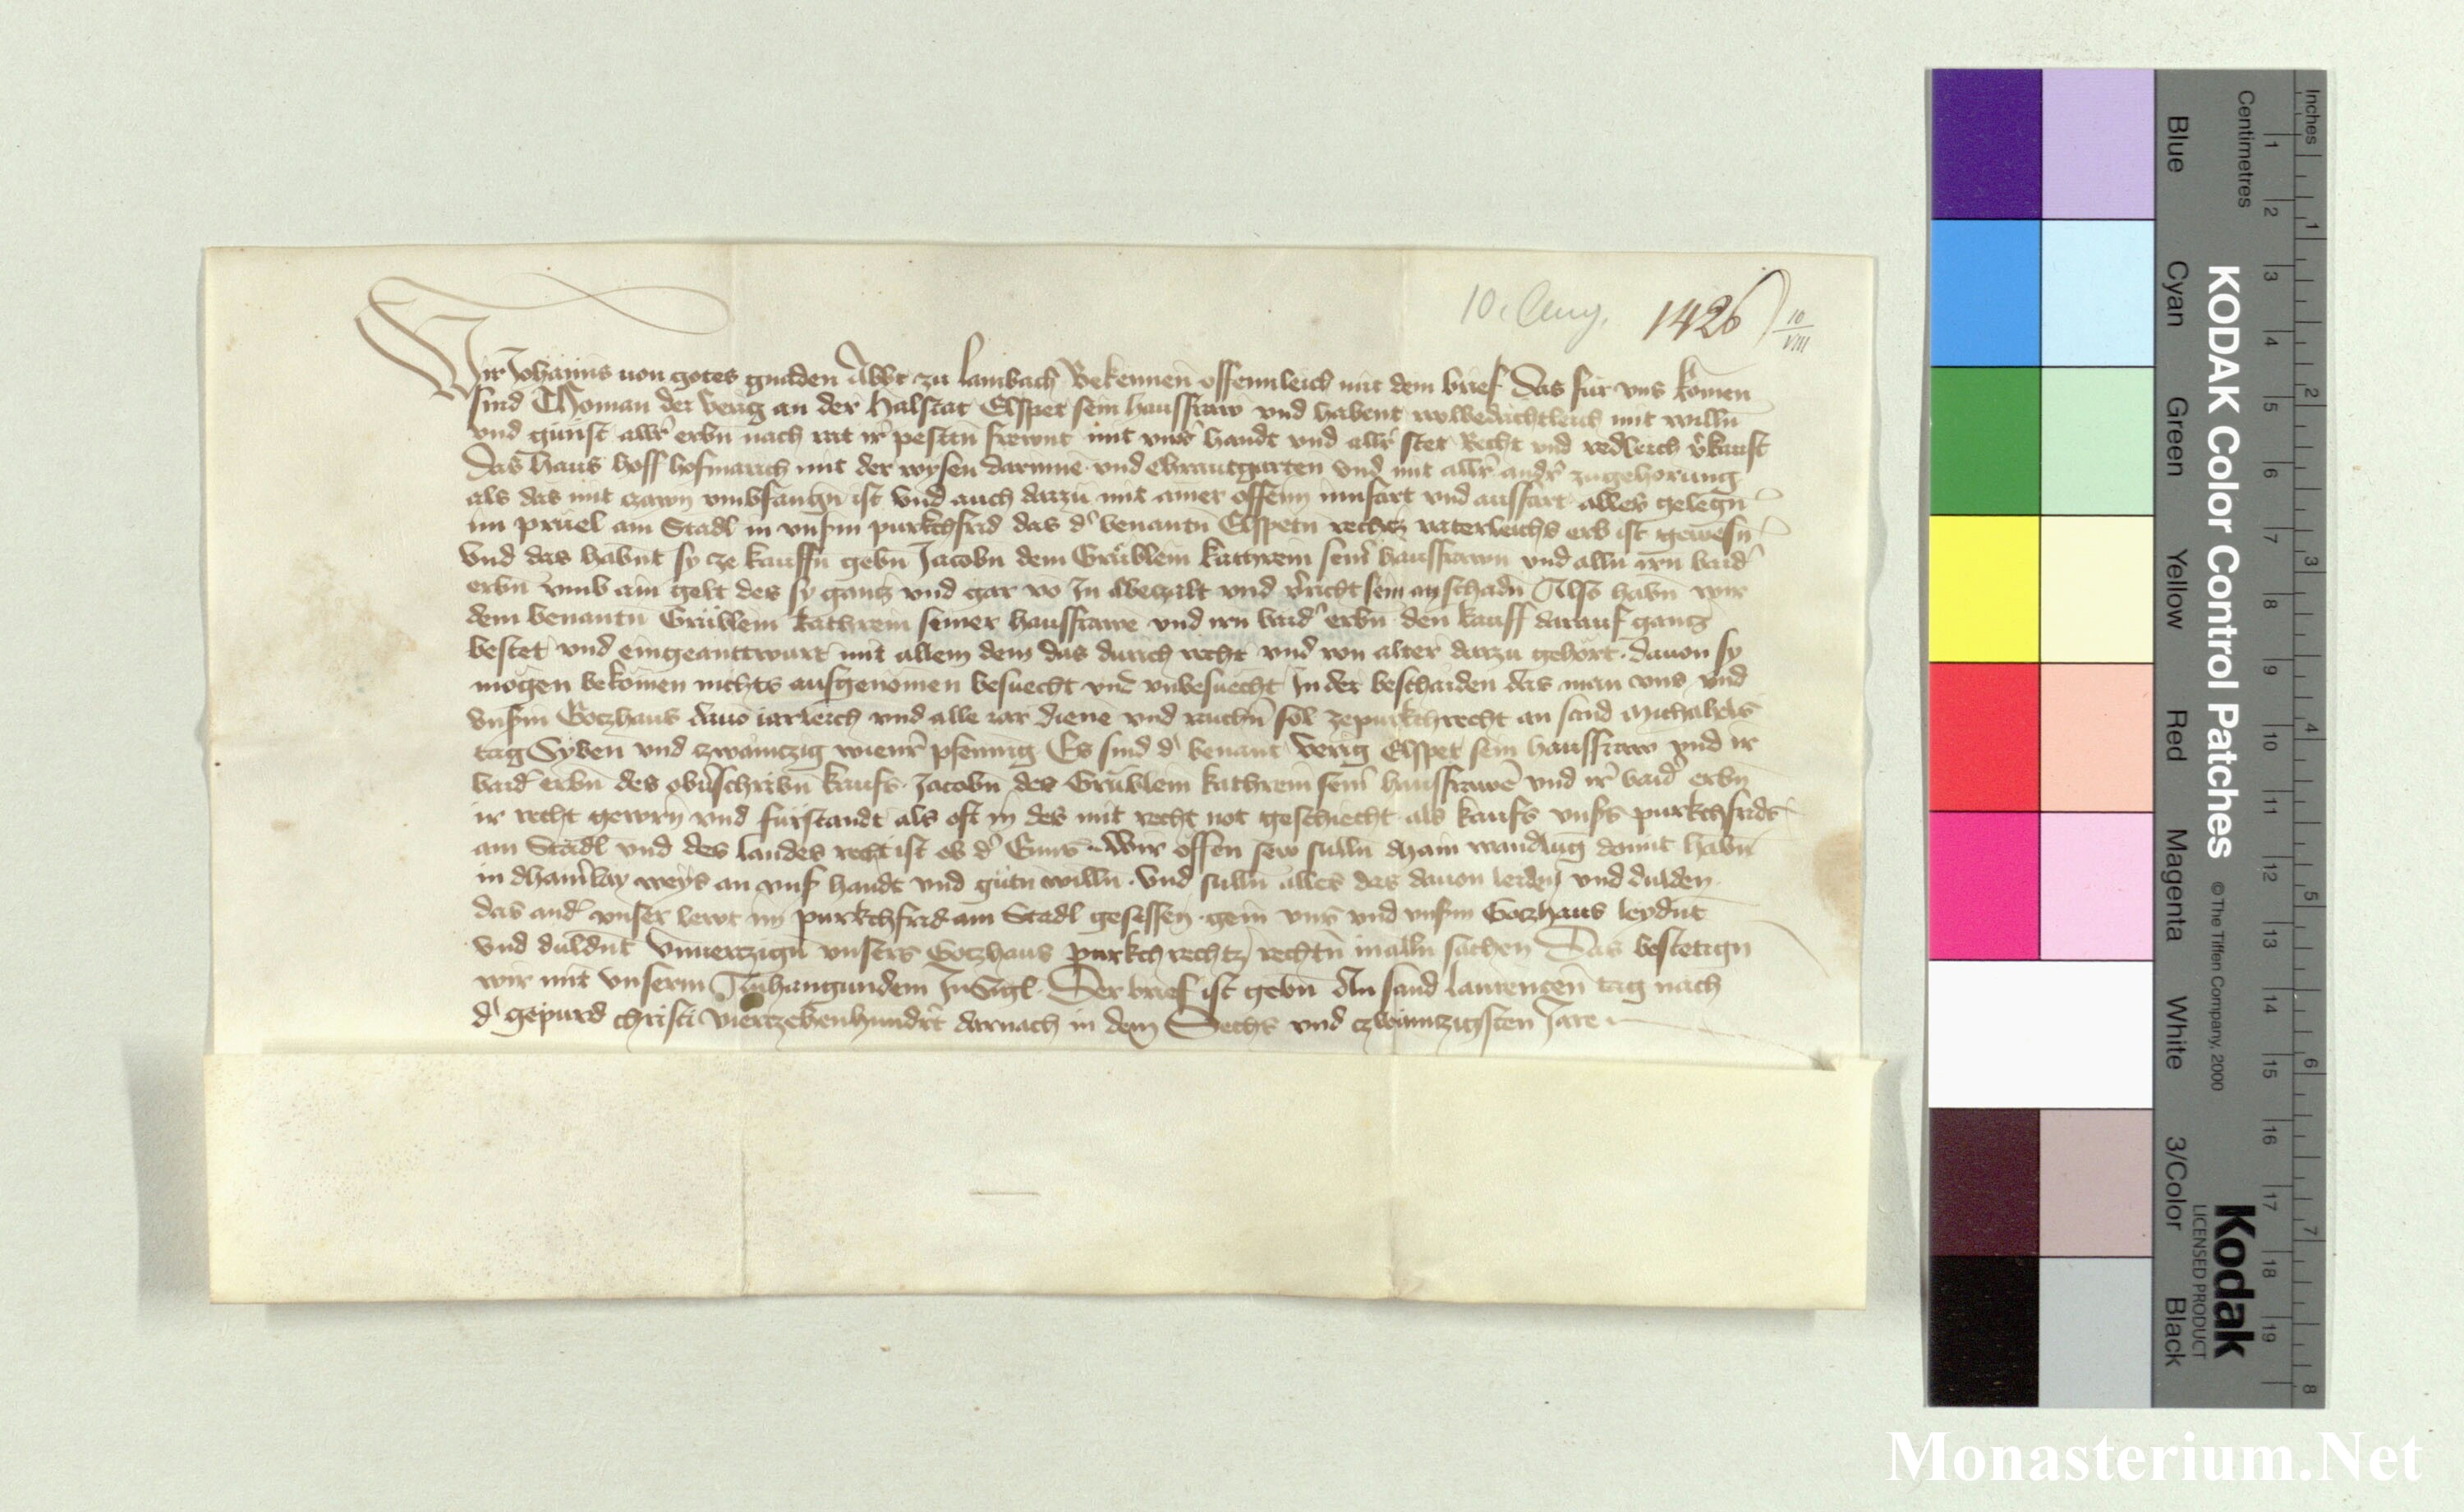 10. Aug. 1426 10/VIII
Wir Johanns von gotes gnaden Abbt zu Lambach Bekennen offennleich mit dem brief Das für vns komen
sind Thoman der Verig an der Halstat Elspet sein hausfraw vnd habent wolbedechtleich mit willn
vnd gunst allr erbn nach rat ir pestn frewnt mit vnsr handt vnd allr stet Recht vnd redleich vkauft
Das haus hoff hofmarch mit der wysen darinne vnd Chrautgarten vnd mit allr andr zugehorung
als das mit czawn vmbfangn ist vnd auch darzu mit ainer offenn innfart vnd ausfart alles gelegn
im prüel am Stadl in vnsm purkchfrid das d benantn Elspetn rechtz vaterleichs erb ist gewesn
Vnd das habnt sy ze kauffn gebn Jacobn dem Grüblein kathrein seinr hausfrawn vnd alln irn baid
erbn vmb ain gelt des sy gantz vnd gar vo In abeczalt vnd vricht sein an schadn Also habn wir
dem benantn Grüblein kathrein seiner hausfrawe vnd irn baid erbn den kauff darauf gantz
bestet vnd eingeanttwurt mit allem dem das durich recht vnd von alter darzu gehort dauon sy
mogen bekomen nichts ausgenomen besuecht vnd vnbesuecht In der beschaiden das man vns vnd
vnsm Gotzhaus dauo iarleich vnd alle iar diene vnd raichn sol zepurkchrecht an sand Michahels
tag Syben vnd czwaintzig wienr pfennig Es sind d benant Verig Elspet sein hausfraw vnd ir
baid erbn des obnschribn kaufs Jacobn des Grüblein kathrein seinr hausfrawe vnd ir baid erbn
ir recht gewern vnd fürstandt als oft in des mit recht not geschiecht als kaufs vnsrs purkchfrids
am Stadl vnd des landes recht ist ob d Enns Wir offen sew sulln chain wandlug damit habn
in dhainrlay weys an vnsr handt vnd gutn willn Vnd sulln alles das dauon leiden vnd dulden
das and vnser lewt im purkchfrid am Stadl gesessen gein vns vnd vnsm Gotzhaus leydnt
vnd duldnt Vnuerczign vnsers Gotzhaus purkchrechtz rechtn in alln sachen Das bestetign
wir mit vnserm Anhangundem InSigl Der brief ist gebn An sand laurencen tag nach
d gepurd christi Viertzehenhundrt darnach in dem Sechs vnd czwaintzigisten Jare
Inches
Centimetres
KODAK Color Control Patches © The Tiffen Company, 2000
Kodak
LICENSED PRODUCT
Blue Cyan Green Yellow Red Magenta White 3/Color Black
1 2 3 4 5 6 7 8 9 10 11 12 13 14 15 16 17 18 19
1 2 3 4 5 6 7 8
Monasterium.Net